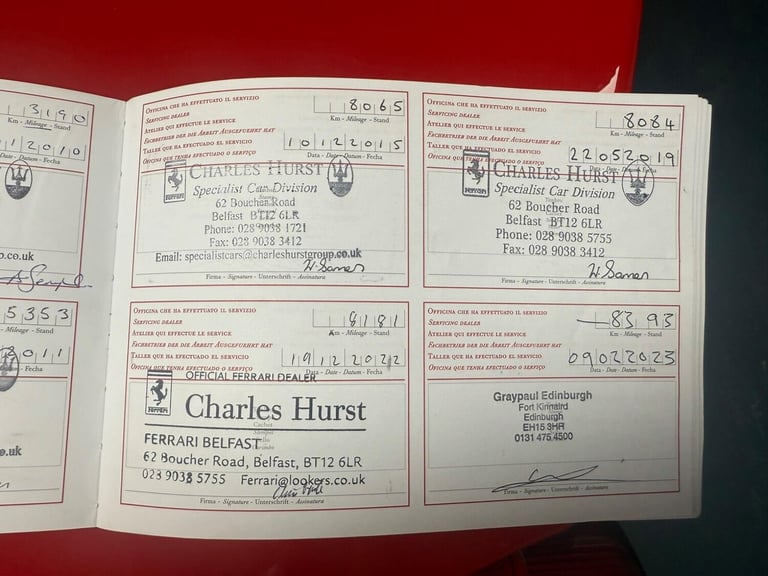 3190
Km - Mileage - Stand
12010
Date - Datum - Fecha
o.co.uk
5353
Mileage - Stand
2011
Datum - Fecha
o.uk
OFFICINA CHE HA EFFETTUATO IL SERVIZIO
SERVICING DEALER
ATELIER QUI EFFECTUE LE SERVICE
FACHBETRIEB DER DIE ARBEIT AUSGEFUEHRT HAT
TALLER QUE HA EFECTUADO EL SERVICIO
OFICINA QUE TENHA EFECTUADO O SERVIÇO
8065
Km - Mileage - Stand
10122015
Data - Date - Datum - Fecha
CHARLES HURST
Ferrari
Specialist Car Division
62 Boucher Road
Belfast BT12 6LR
Phone: 028 9038 1721
Fax: 028 9038 3412
Email: specialistcars@charleshurstgroup.co.uk
Firma - Signature - Unterschrift - Assinatura
OFFICINA CHE HA EFFETTUATO IL SERVIZIO
SERVICING DEALER
ATELIER QUI EFFECTUE LE SERVICE
FACHBETRIEB DER DIE ARBEIT AUSGEFUEHRT HAT
TALLER QUE HA EFECTUADO EL SERVICIO
OFICINA QUE TENHA EFECTUADO O SERVIÇO
8084
Km - Mileage - Stand
22052019
Data - Date - Datum - Fecha
CHARLES HURST
Ferrari
Specialist Car Division
62 Boucher Road
Belfast BT12 6LR
Phone: 028 9038 5755
Fax: 028 9038 3412
Firma - Signature - Unterschrift - Assinatura
OFFICINA CHE HA EFFETTUATO IL SERVIZIO
SERVICING DEALER
ATELIER QUI EFFECTUE LE SERVICE
FACHBETRIEB DER DIE ARBEIT AUSGEFUEHRT HAT
TALLER QUE HA EFECTUADO EL SERVICIO
OFICINA QUE TENHA EFECTUADO O SERVIÇO
8181
Km - Mileage - Stand
19122022
Data - Date - Datum - Fecha
OFFICIAL FERRARI DEALER
Ferrari
Charles Hurst
FERRARI BELFAST
62 Boucher Road, Belfast, BT12 6LR
028 9038 5755 Ferrari@lookers.co.uk
Firma - Signature - Unterschrift - Assinatura
OFFICINA CHE HA EFFETTUATO IL SERVIZIO
SERVICING DEALER
ATELIER QUI EFFECTUE LE SERVICE
FACHBETRIEB DER DIE ARBEIT AUSGEFUEHRT HAT
TALLER QUE HA EFECTUADO EL SERVICIO
OFICINA QUE TENHA EFECTUADO O SERVIÇO
8393
Km - Mileage - Stand
09022023
Data - Date - Datum - Fecha
Graypaul Edinburgh
Fort Kinnaird
Edinburgh
EH15 3HR
0131 475 4500
Firma - Signature - Unterschrift - Assinatura